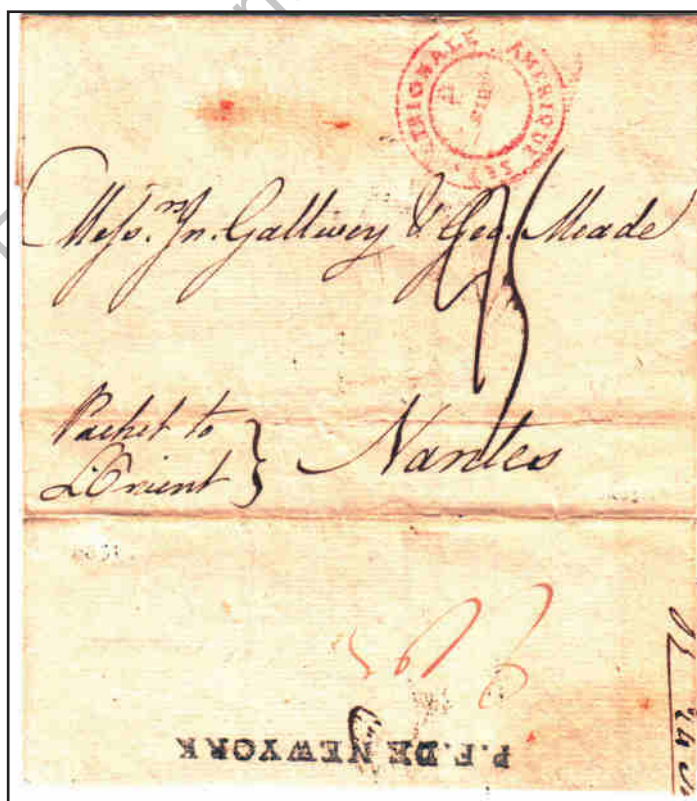 AMERIQUE SEPTENTRIONALE
Mess.rs Jn. Gallwey & Geo. Meade
Packet to
L'Orient } Nantes
P.F. DE NEWYORK